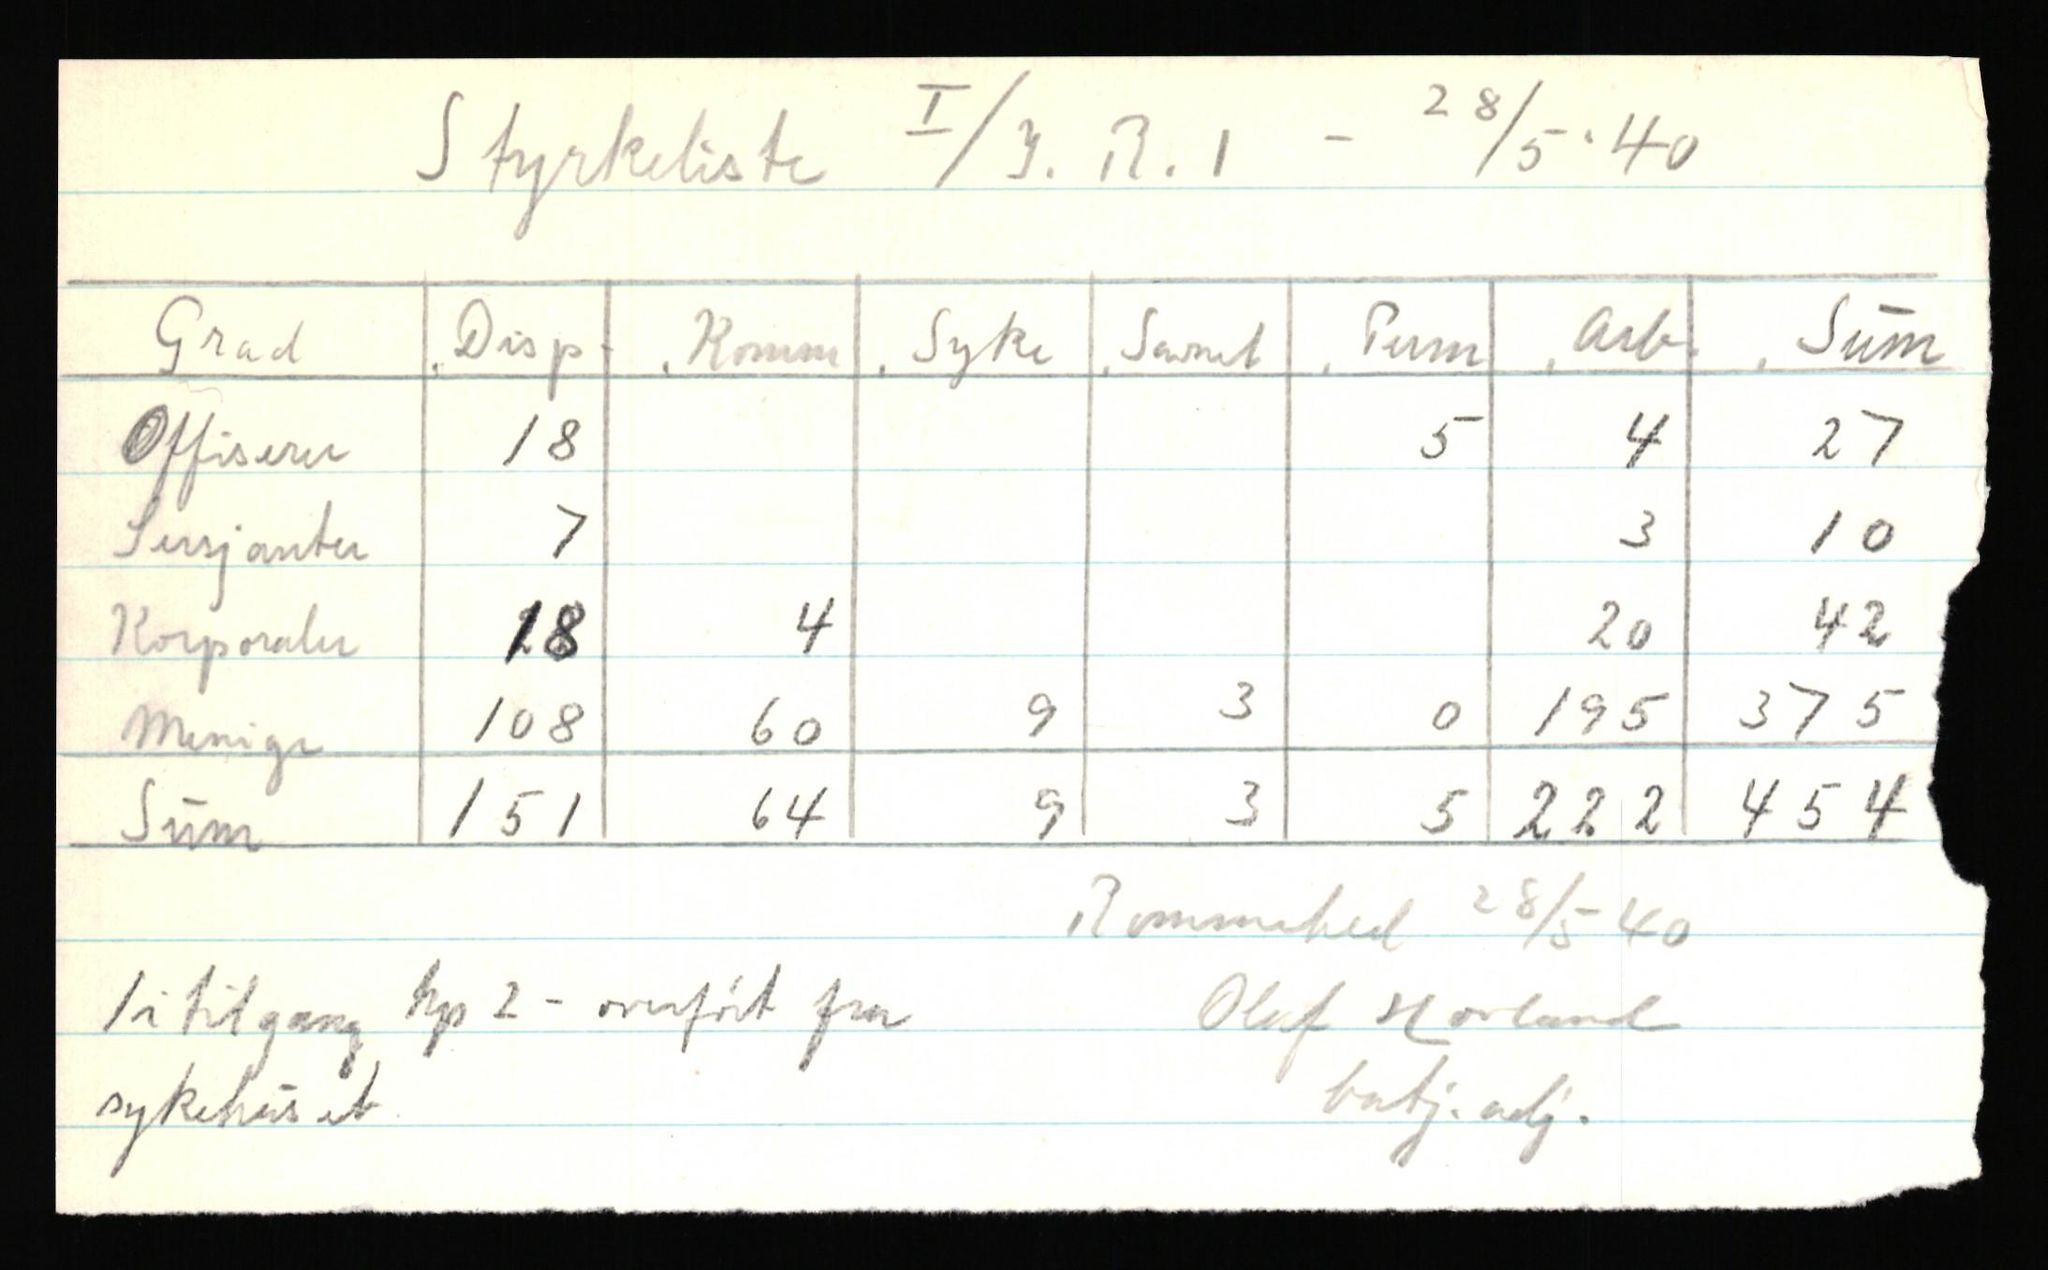 Styrkeliste I/I.R.1 - 28/5.40
Grad Disp. Komm Syke Savnet Perm Arb. Sum
Offiserer 18 5 4 27
Sersjanter 7 3 10
Korporaler 18 4 20 42
Menige 108 60 9 3 0 195 375
Sum 151 64 9 3 5 222 454
Rommehed 28/5 40
1 i tilgang kp 2 - overført fra
sykehuset.
Olaf Horland
batj. adj.